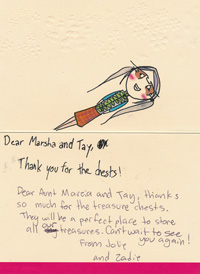 Dear Marsha and Tay,
Thank you for the chests!
Dear Aunt Marcia and Tay, thanks
so much for the treasure chests.
They will be a perfect place to store
all our treasures. Can't wait to see
you again!
From Jolie
and Zadie